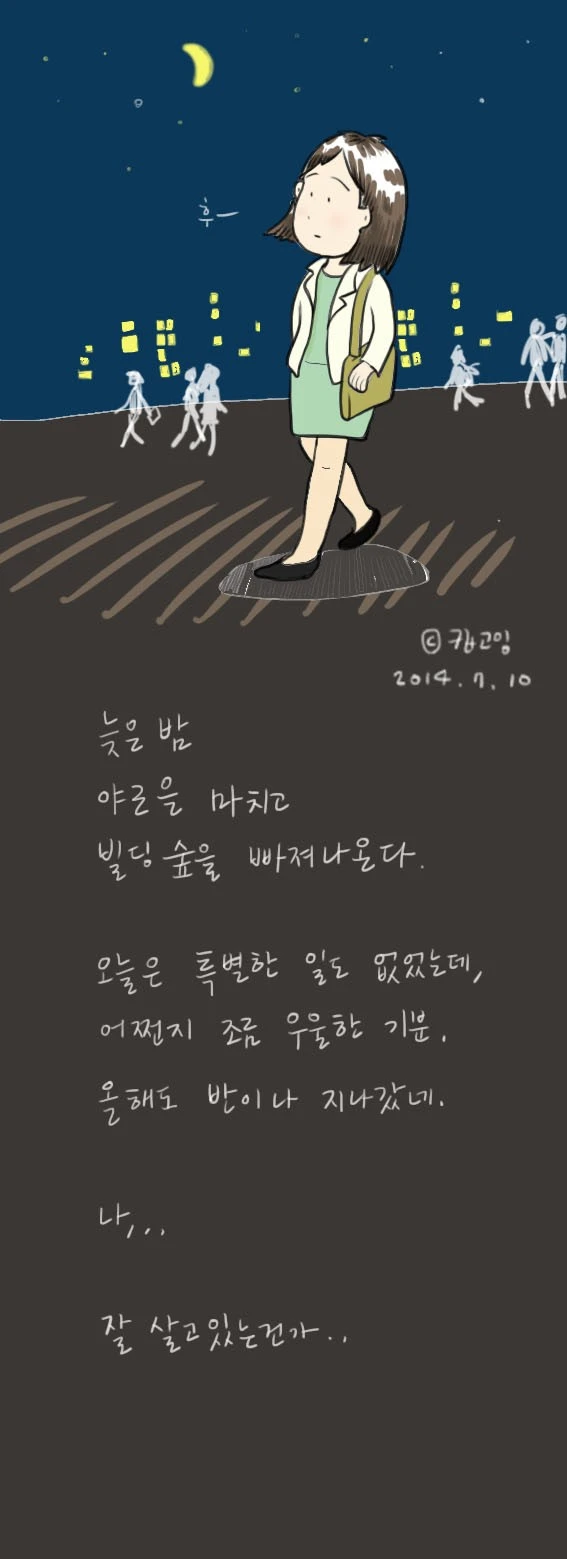 후-
ⓒ 캅고잉
2014.7.10
늦은 밤
야근을 마치고
빌딩 숲을 빠져나온다.
오늘은 특별한 일도 없었는데,
어쩐지 조금 우울한 기분.
올해도 반이나 지나갔네.
나...
잘 살고있는건가..